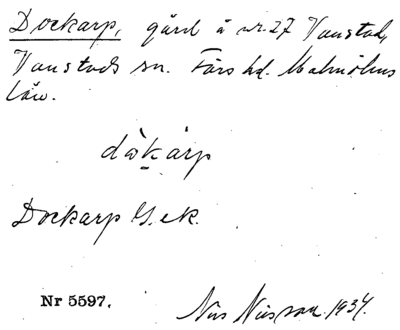 Dockarp, gård å nr. 27 Vanstad,
Vanstads sn. Färs hd. Malmöhus
län.
dòkárp
Dockarp G.ek.
Nr 5597.
Nils Nilsson 1934.